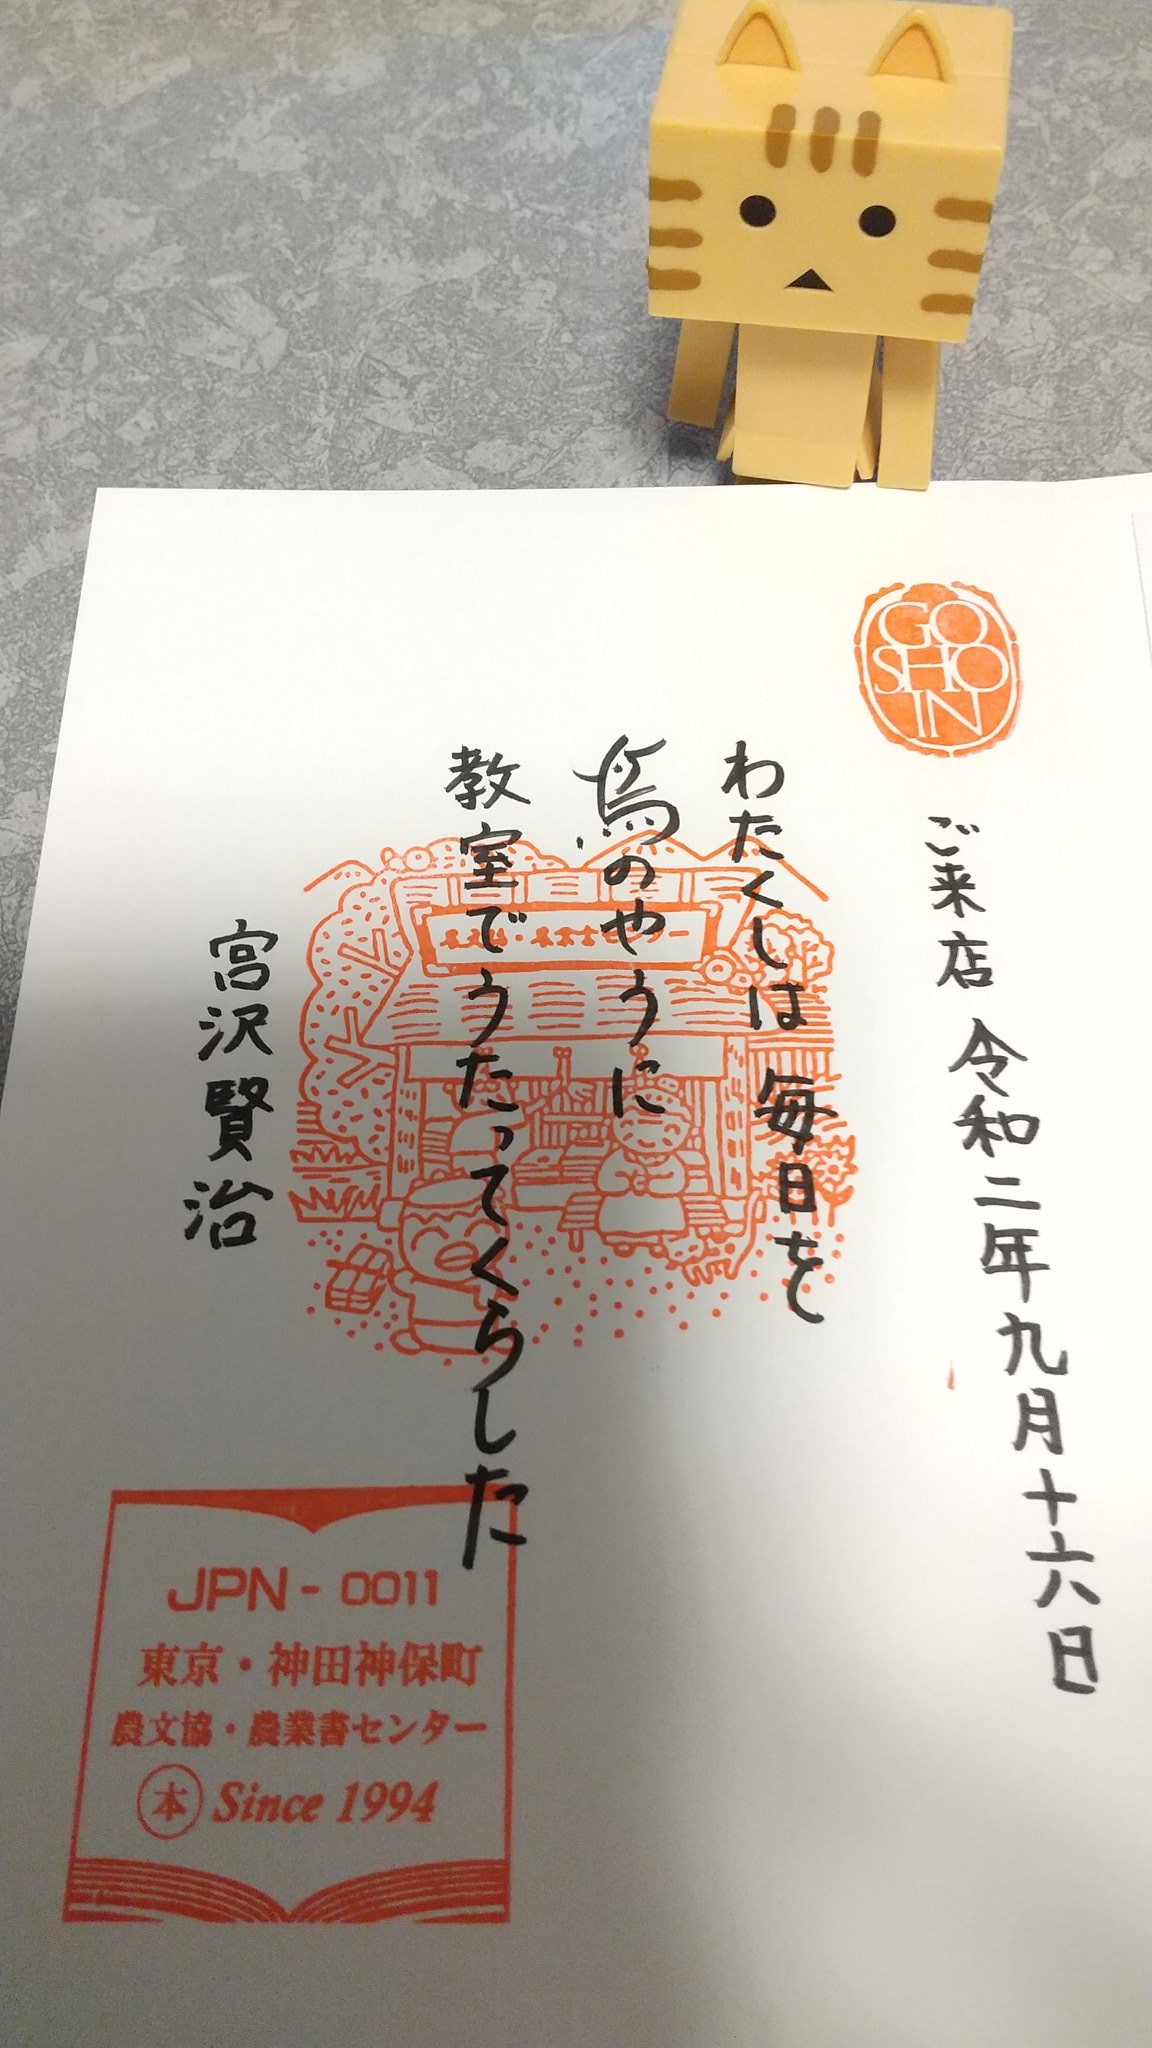 GO
SHO
IN
ご来店 令和二年九月十六日
わたくしは 毎日を
鳥のやうに
教室でうたってくらした
宮沢賢治
農文協・農業書センター
JPN-0011
東京・神田神保町
農文協・農業書センター
本 Since 1994